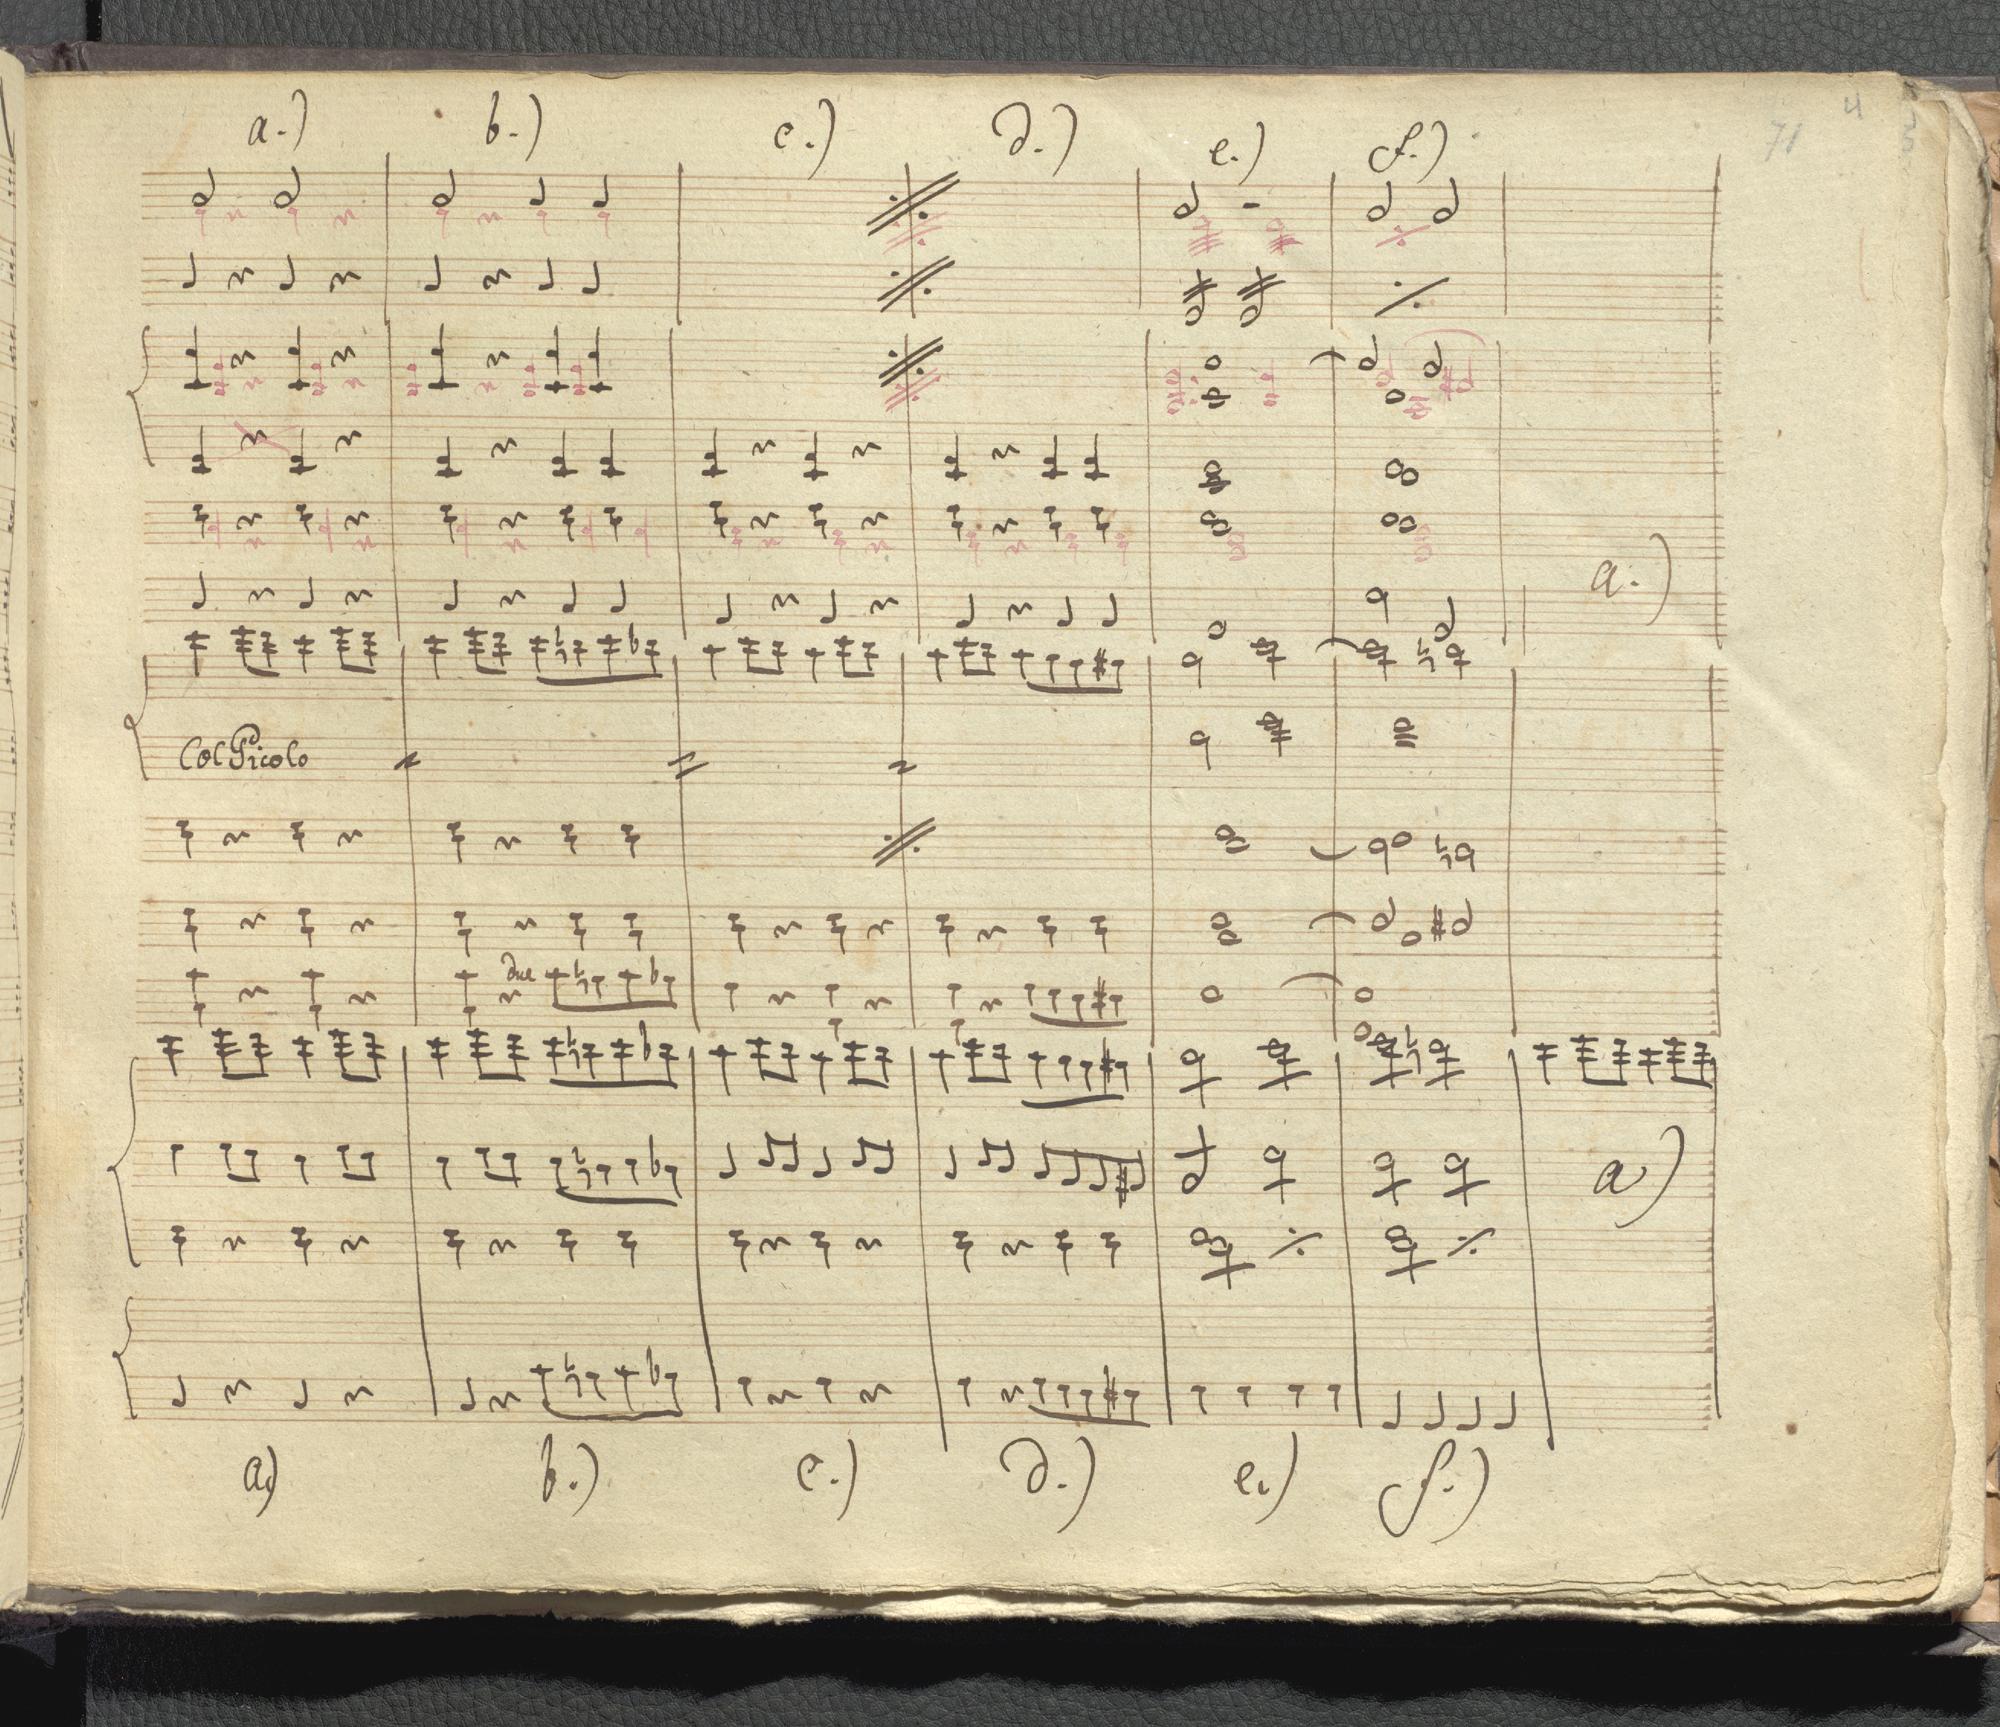 a.) b.) c.) d.) e.) f.)
71
4
a.)
Col Picolo
due
a)
a) b.) c.) d.) e.) f.)